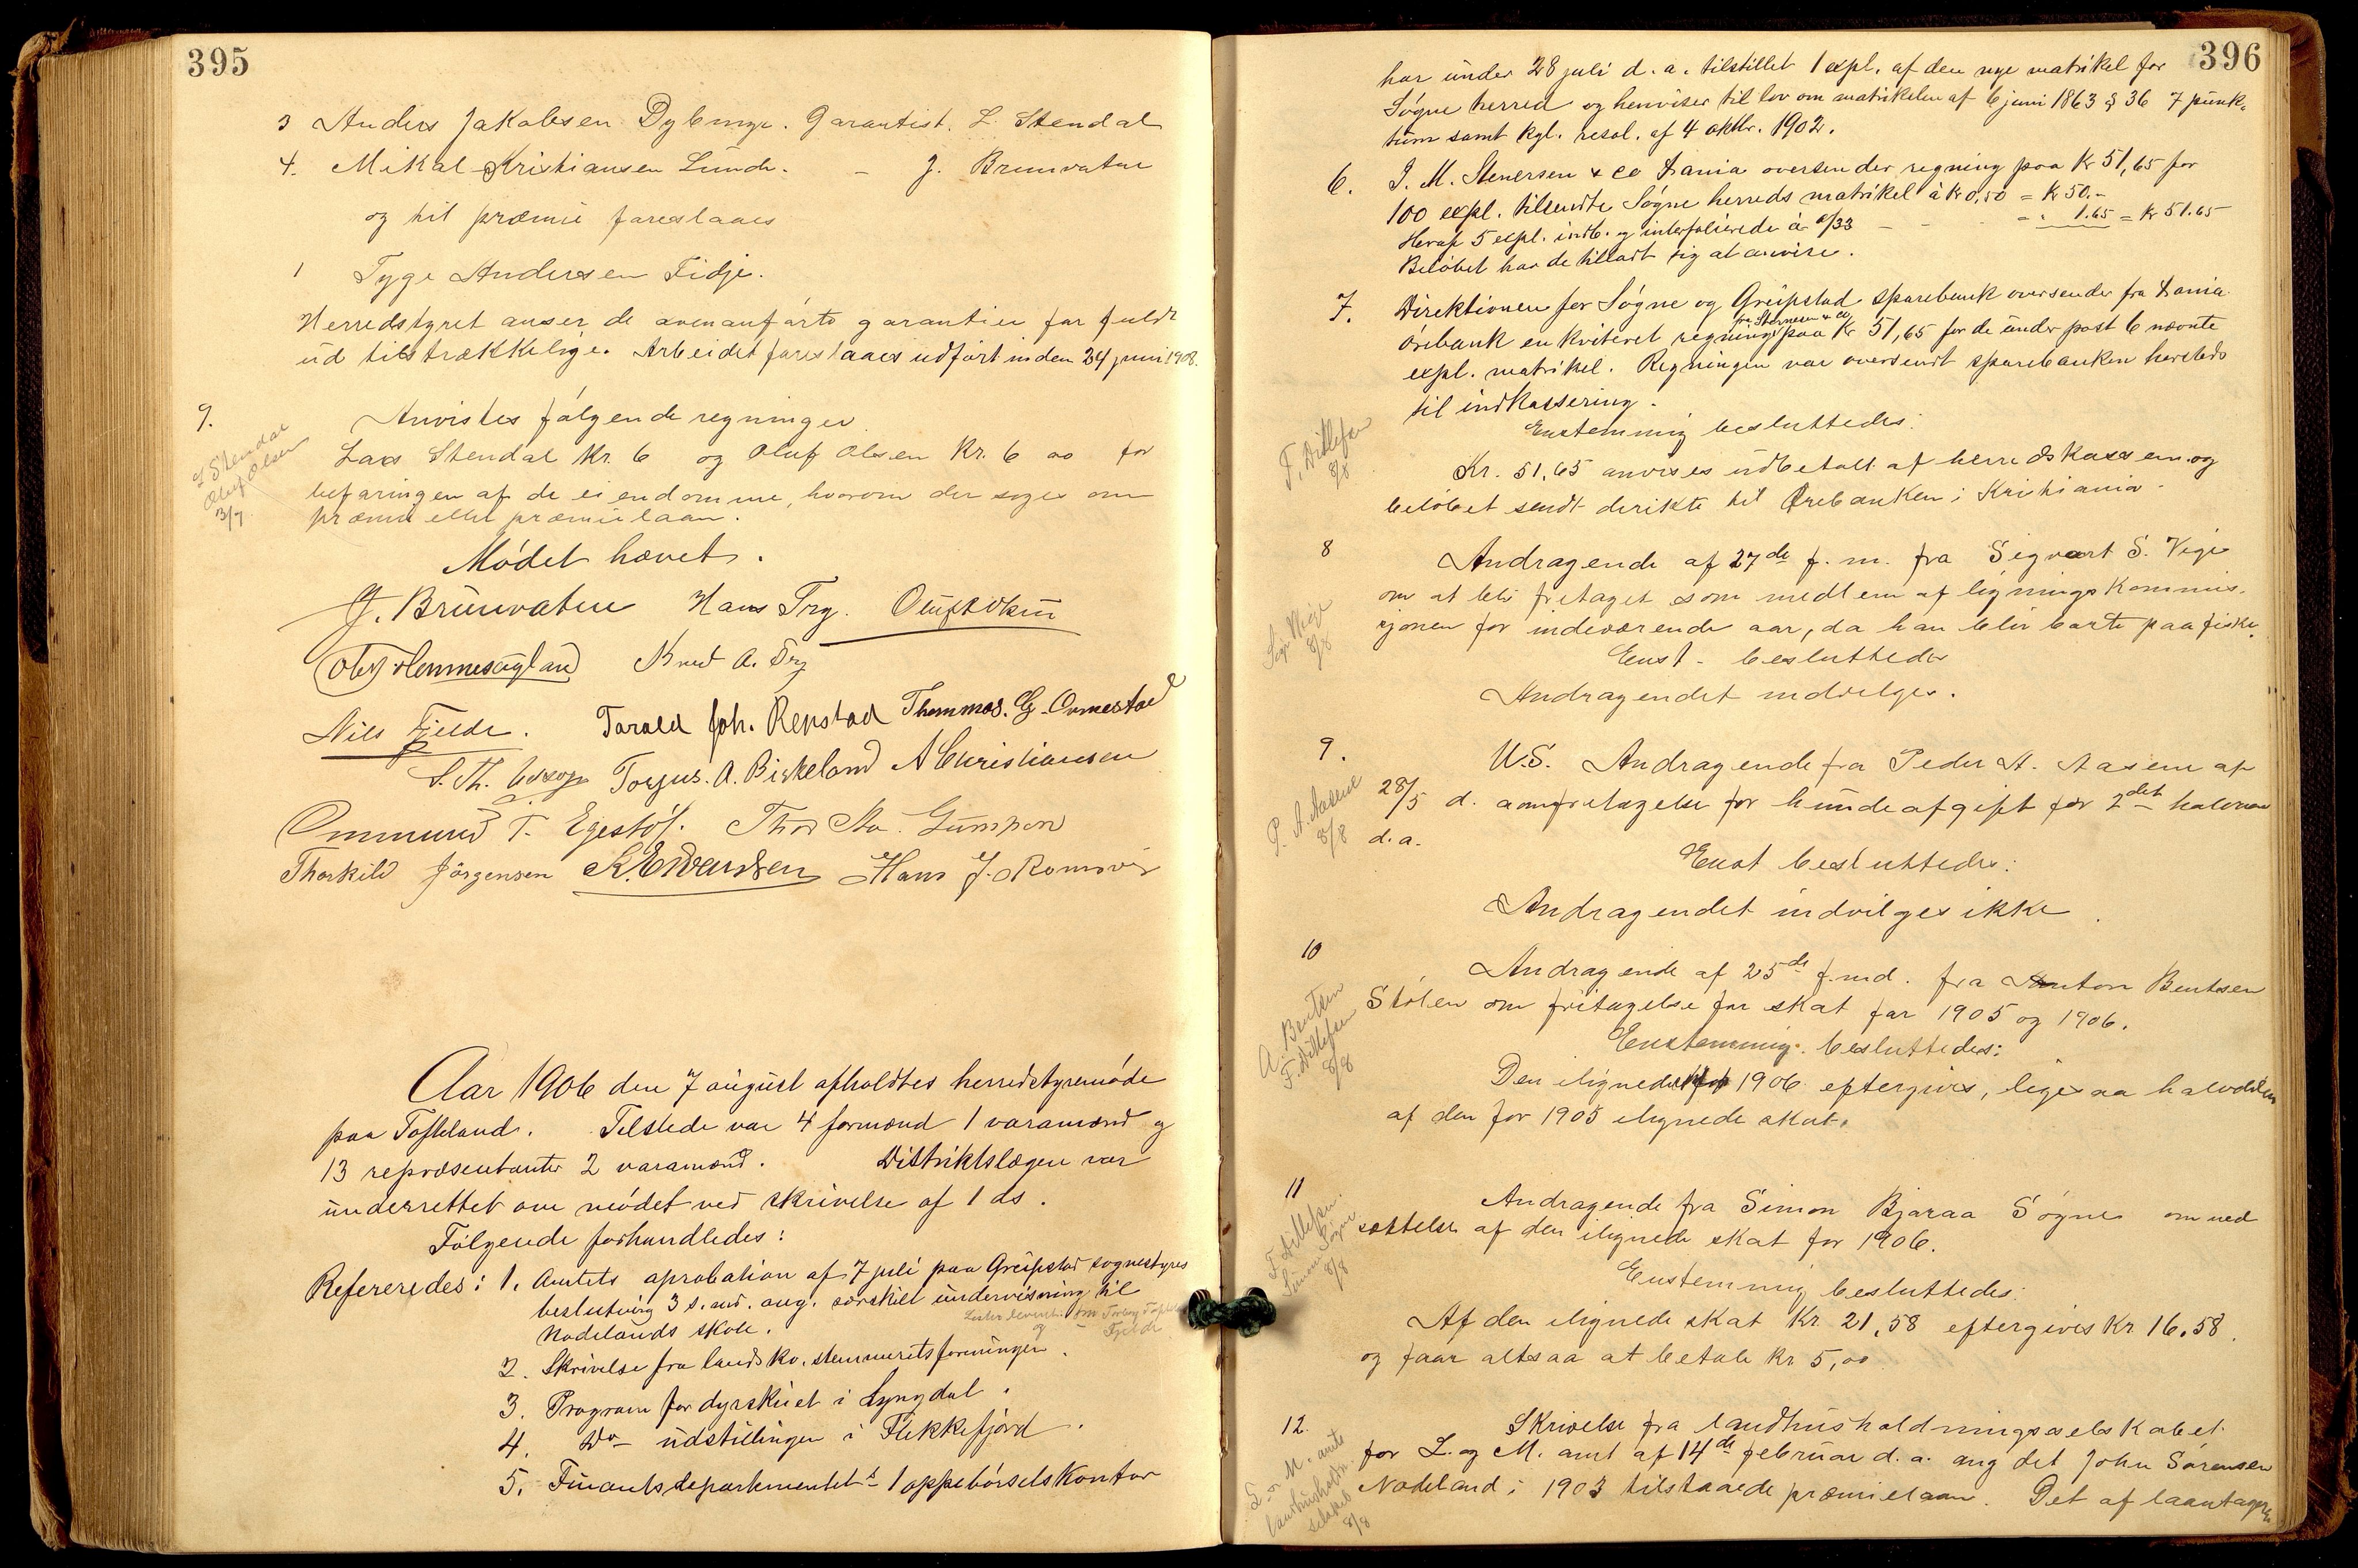 395
3 Anders Jakobsen Dybinge. Garantist. L. Stendal
4. Mikal Kristiansen Lunde. - J. Brunvatne
og til præmie foreslaaes
1 Tyge Andersen Fidje.
Herredstyret anser de ovenanførte garantier for fuldt
ud tilstrækkelige. Arbeidet foreslaaes udført inden 24 juni 1908.
9. Anvistes følgende regninger
L Stendal
Oluf Olsen
3/7
Lars Stendal Kr. 6 og Oluf Olsen Kr. 6 00 for
befaringen af de eiendomme, hvorom der søges om
præmie eller præmielaan.
Mødet hævet.
J. Brunvatne Hans Try. Oluf
Knut A. Try
Nils Fjelde. Tarald Joh. Repstad Thommas. G. Omestad
S. Th. Torjus. A. Birkeland A Christiansen
Ommund T. Egestøl. Thor Aa. Gumpen
Thorkild Jørgensen Hans J. Romsvig
Aar 1906 den 7 august afholdtes herredstyremøde
paa Tofteland. Tilstede var 4 formænd 1 varamænd og
13 repræsentanter 2 varamænd. Distriktslægen var
underrettet om mødet ved skrivelse af 1 ds.
Følgende forhandledes:
Refereredes: 1. Amtets aprobation af 7 juli paa Greipstad sognestyres
beslutning 3 s. md. ang. særskilt undervisning til
Nodelands skole.
og Fjelde
2. Skrivelse fra landskv. stemmeretsforeningen.
3. Program for dyrskuet i Lyngdal.
4. Do - udstillingen i Flekkefjord.
5. Finantsdepartementets 1 oppebørselskontor
396
har under 28 juli d. a. tilstillet 1 expl. af den nye matrikel for
Søgne herred og henviser til lov om matrikelen af 6 juni 1863 § 36 7 punk-
tum samt kgl. resol. af 4 oktbr. 1902.
6. J. M. Stenersen & co Kania oversender regning paa Kr 51,65 for
100 expl. tilsendte Søgne herreds matrikel à Kr 0,50 = Kr 50.-
Heraf 5 expl. indb. og interfolierede à 0/33 - - - 1.65 = Kr 51.65
Beløbet har de tilladt sig at anvise.
7. Direktionen for Søgne og Greipstad sparebank oversender fra Kania
fra Stenersen & co
ørebank en kviteret regning paa Kr 51,65 for de under post 6 nævnte
expl. matrikel. Regningen var oversendt sparebanken hersteds
til indkassering.
F. Ditlefsen
8/8
Enstemmig besluttedes:
Kr. 51,65 anvises udbetalt af herredskassen og
beløbet sendt direkte til Ørebanken i Kristiania.
8 Andragende af 27de f. m. fra Sigvart S. Vige
om at bli fritaget som medlem af ligningskommis-
sjonen for indeværende aar, da han blir borte paa fiske.
Sigv Vige
8/8
Enst. besluttedes
Andragendet indvilges.
9. U.S. Andragende fra Peder A. Aasene af
28/5 d. a om fritagelse for hundeafgift for 2det halvaar
d. a.
P. A. Aasene
8/8
Enst besluttedes:
Andragendet indvilges ikke.
10 Andragende af 25de f. md. fra Anton Bentsen
Stølen om fritagelse for skat for 1905 og 1906.
A. Bentsen
F. Ditlefsen
8/8
Enstemmig besluttedes:
Den ilignede for 1906 eftergives, ligesaa halvdelen
af den for 1905 ilignede skat.
11 Andragende fra Simon Bjaraa Søgne om ned
sættelse af den ilignede skat for 1906.
F. Ditlefsen
Simon Søgne
8/8
Enstemmig besluttedes:
Af den ilignede skat Kr. 21,58 eftergives Kr 16,58.
og faar altsaa at betale Kr 5,00
12. Skrivelse fra landhusholdningsselskabet
for L. og M. amt af 14de februar d. a. ang det John Sørensen
Nodeland i 1903 tilstaaede præmielaan. Det af laantageren
L. o. M. amts
landhusholdn.
selskab
8/8